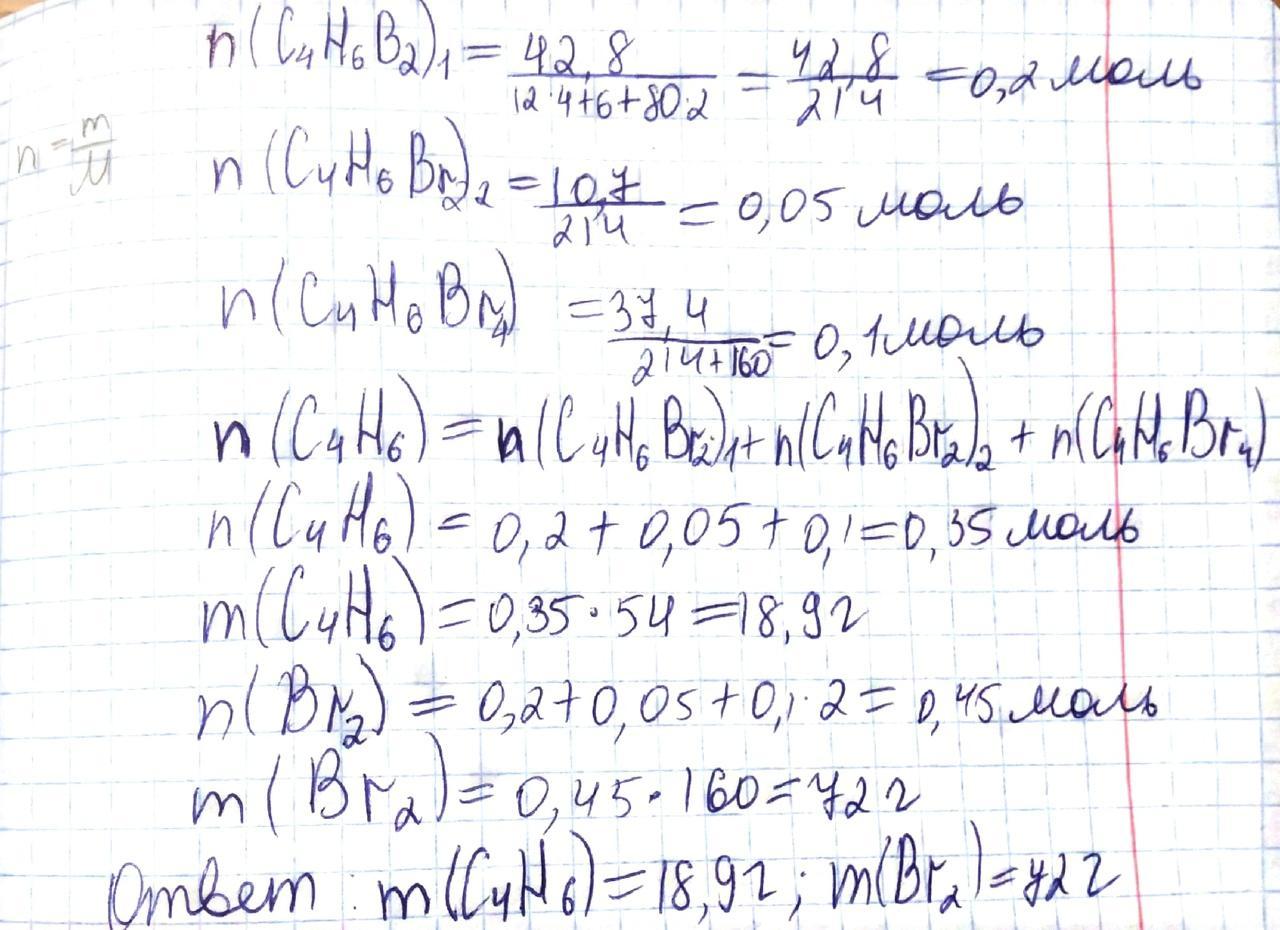 n(C₄H₆B₂)₁ = 42,8 / (12·4+6+80·2) = 42,8 / 214 = 0,2 моль
n = m / M
n(C₄H₆Br₂)₂ = 10,7 / 214 = 0,05 моль
n(C₄H₆Br₄) = 37,4 / (214+160) = 0,1 моль
n(C₄H₆) = n(C₄H₆Br₂)₁ + n(C₄H₆Br₂)₂ + n(C₄H₆Br₄)
n(C₄H₆) = 0,2 + 0,05 + 0,1 = 0,35 моль
m(C₄H₆) = 0,35 · 54 = 18,9 г
n(Br₂) = 0,2 + 0,05 + 0,1 · 2 = 0,45 моль
m(Br₂) = 0,45 · 160 = 72 г
Ответ : m(C₄H₆) = 18,9 г ; m(Br₂) = 72 г